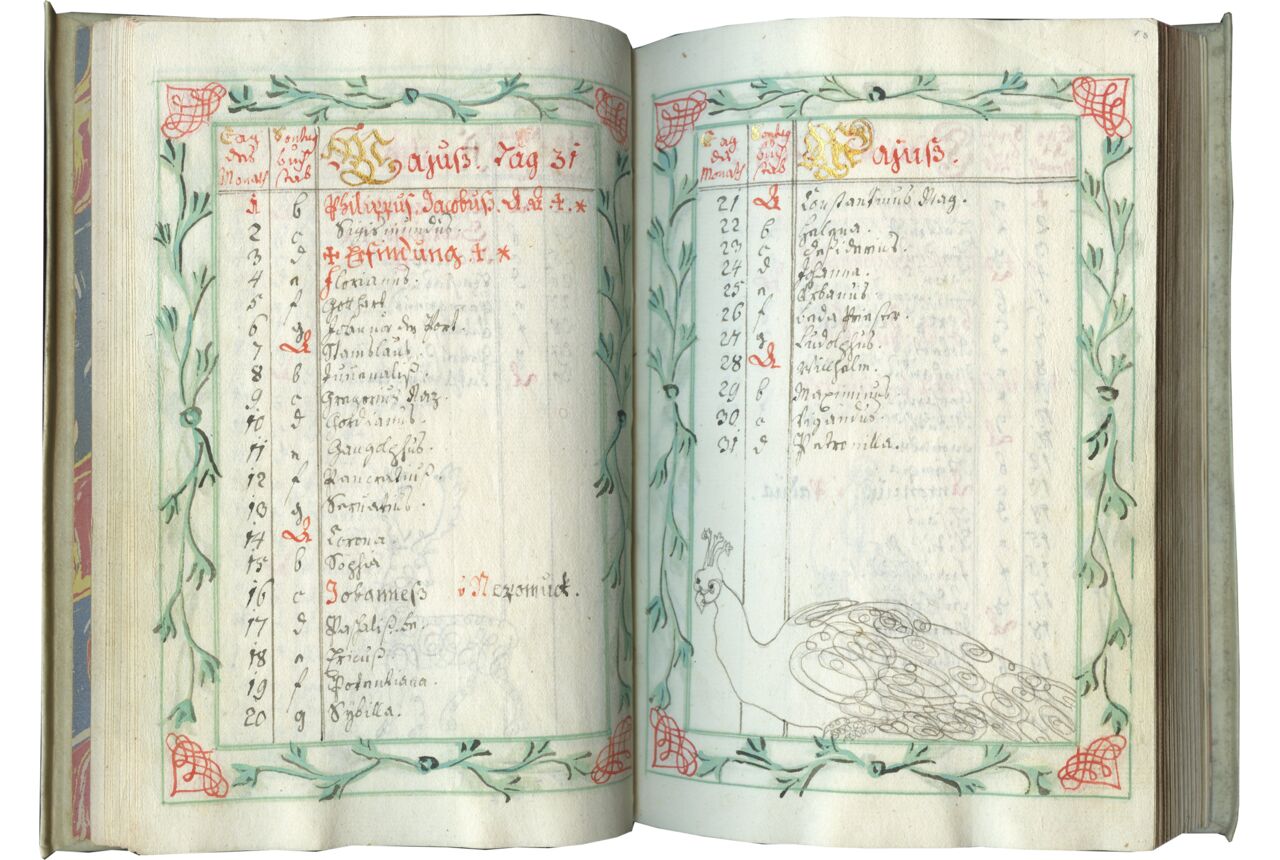 Tag des Monaths
Sontag buch stab
Majuß. Tag 31
1 b Philippus, Jacobuß. A. A. +. *
2 c Sigismundus.
3 d + Erfindung +. *
4 e Florianus.
5 f Gothart
6 g Joannes der Port.
7 A Stanislaus.
8 b Juuenaliß.
9 c Gregorius Naz.
10 d Gordianus.
11 e Gangolphus.
12 f Pancratius.
13 g Seruatius.
14 A Corona.
15 b Sophia
16 c Johanneß v Nepomuck.
17 d Paschaliß
18 e
19 f Potentiana.
20 g Sybilla.
Tag des Monaths
Sontag buch stab
Majuß.
21 A Constantinus Mag.
22 b Helena.
23 c Desiderius.
24 d Johanna.
25 e Urbanus.
26 f Beda Priester.
27 g Ludolphus.
28 A Wilhelm.
29 b Maximinus
30 c Wigandus.
31 d Petronilla.